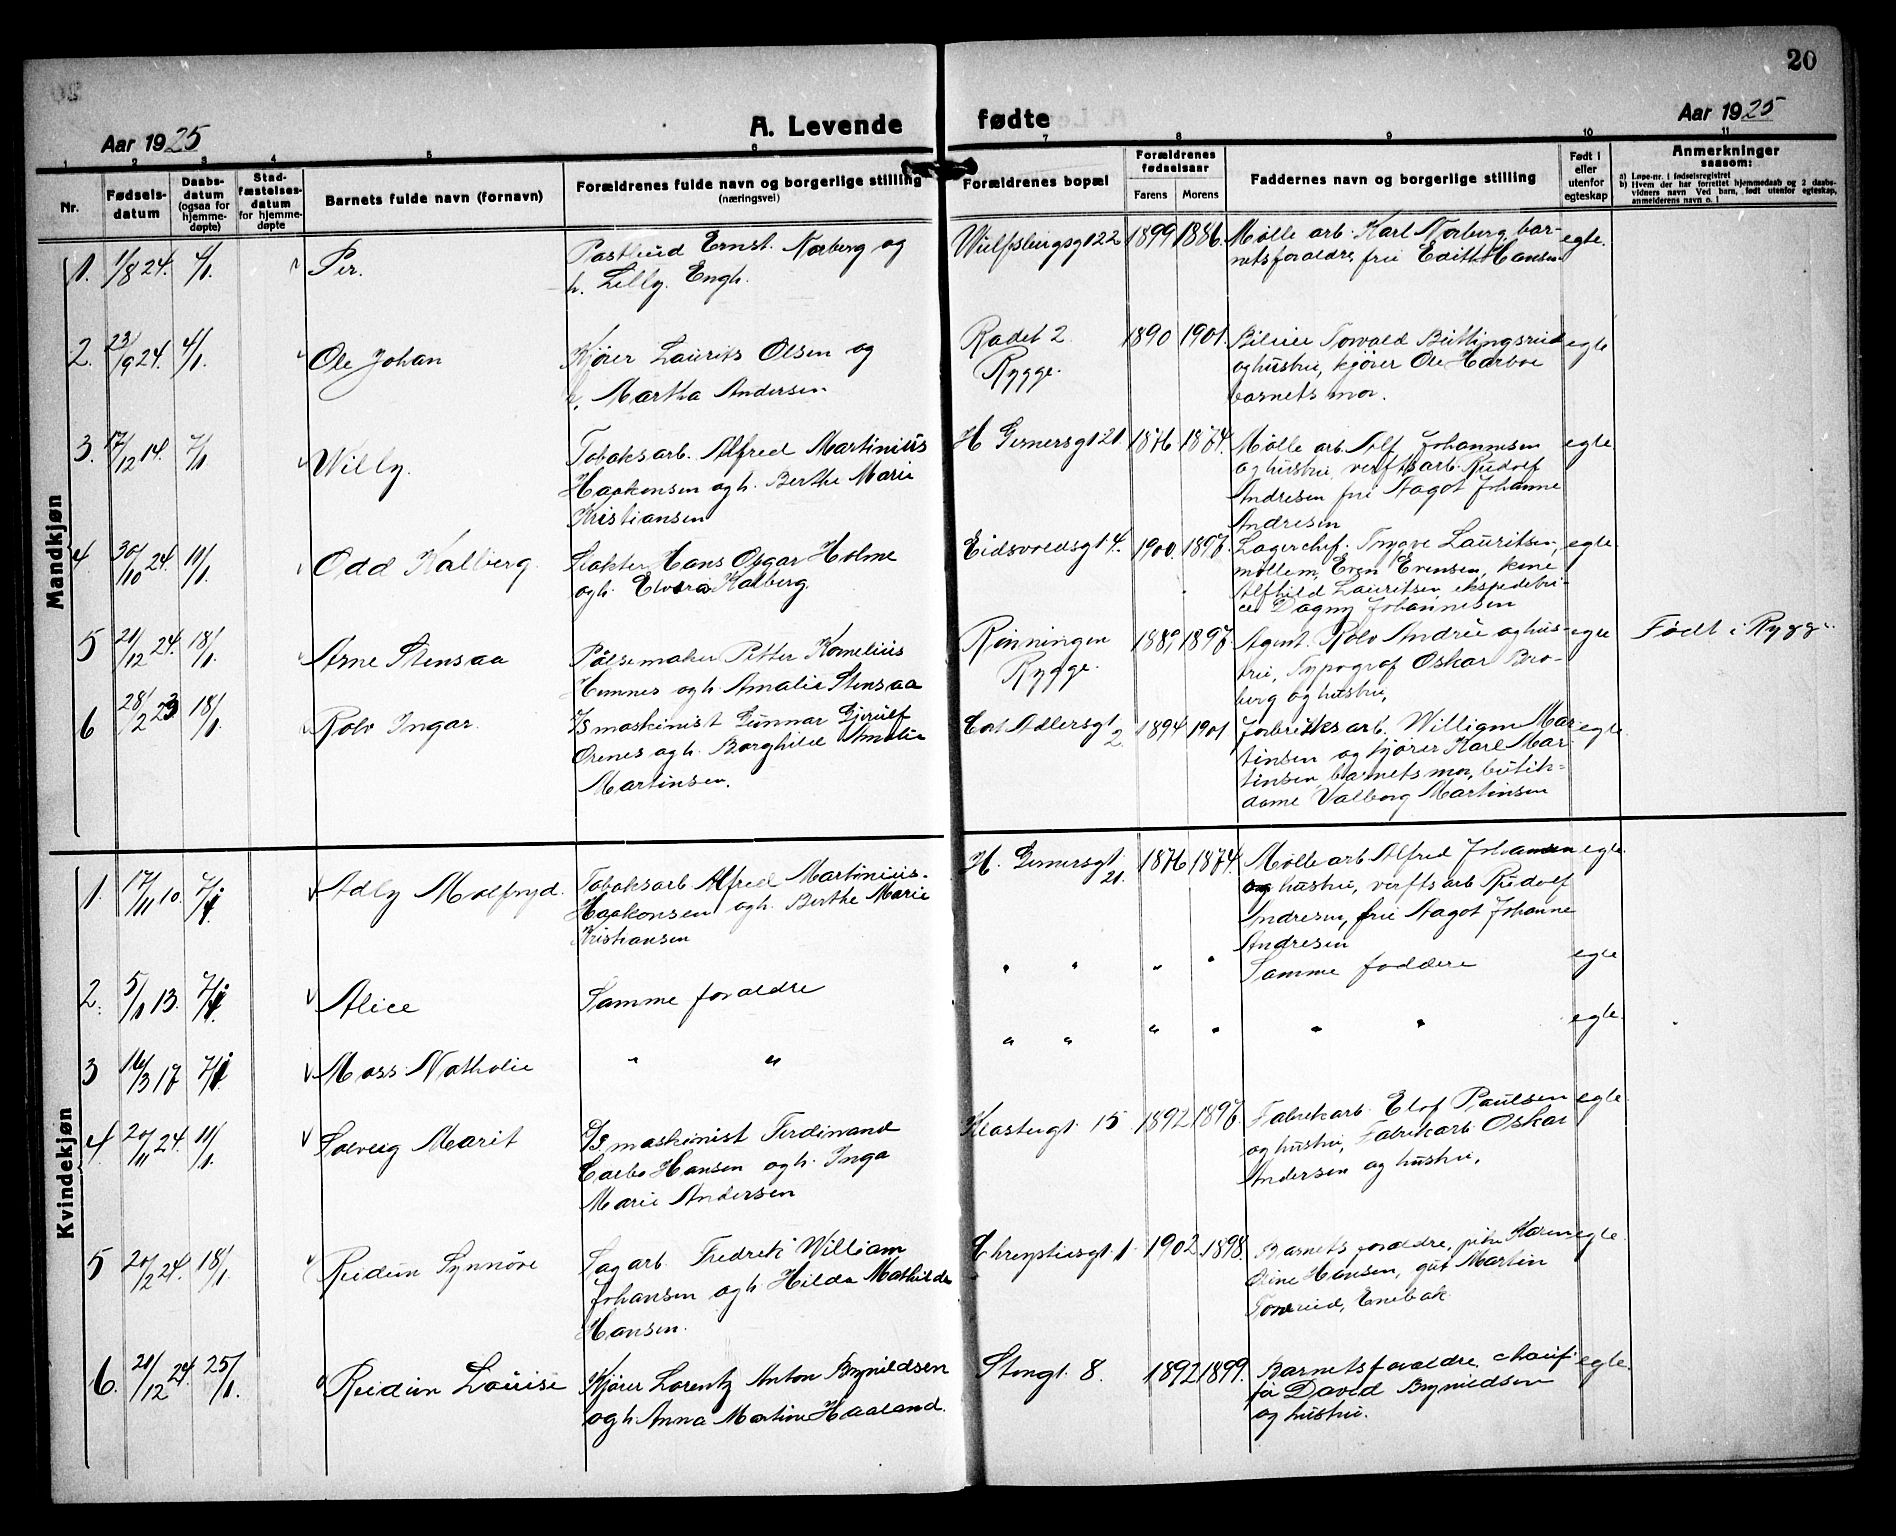 20
Aar 1925
A. Levende fødte
Aar 1925
1 2 3 4 5 6 7 8 9 10 11
Nr.
Fødsels-
datum
Daabs-
datum
(ogsaa for
hjemme-
døpte)
Stad-
fæstelses-
datum
for hjemme-
døpte
Barnets fulde navn (fornavn)
Forældrenes fulde navn og borgerlige stilling
(næringsvei)
Forældrenes bopæl
Forældrenes
fødselsaar
Farens Morens
Faddernes navn og borgerlige stilling
Født i
eller
utenfor
egteskap
Anmerkninger
saasom:
a) Løpe-nr. i fødselsregistret
b) Hvem der har forrettet hjemmedaab og 2 daabs-
vidners navn Ved barn, født utenfor egteskap,
anmelderens navn o. l
Mandkjøn
1. 1/8 24. 4/1. Per.
Postbud Ernst Norberg og
h. Lilly Engh.
Wulfsbergsgt 22 1899 1886.
Mølle arb. Karl Norberg, bar-
netsforældre, frü Edith Hansen
egte.
2. 23/9 24. 4/1. Ole Johan
Kjører Laurits Olsen og
h. Martha Andersen
Radet 2
Rygge.
1890 1901.
Bileier Torvald Buttingsrud
og hustru, kjører Ole Harboe
barnets mor.
egte
3. 17/12 14. 7/1 Willy.
Tobaksarb. Alfred Martinius
Haakonsen og h. Berthe Marie
Kristiansen
H Gernersgt 21. 1876 1874.
Mølle arb. Alf Johannesen
og hustru, verftsarb. Rudolf
Andresen frü Aagot Johanne
Andresen
egte.
4 30/10 24. 11/1. Odd Kalberg.
Slakter Hans Osgar Holme
og h. Elvira Kalberg.
Eidsvoldsgt 4. 1900. 1897.
Lagerchef. Trygve Lauritsen,
møllem, Even Evensen, kone
Alfhild Lauritsen, ekspedetri-
ce Dagny Johannesen
egte.
5 21/12 24. 18/1. Arne Stensaa
Pølsemaker Petter Kornelius
Hemnes og h. Amalie Stensaa
Rønningen
Rygge.
1889 1897.
Agent. Rolv Andrée og hus-
tru, Typograf Oskar Bro-
berg og hustru,
egte
Født i Rygge.
6 28/2 23 18/1. Rolv Ingar.
maskinist Gunnar Gjerulf
Ørenes og h. Borghild Amalie
Martinsen.
Cort Adlersgt
2.
1894 1901
Fabriksarb. William Mar
tinsen og kjører Karl Mar
tinsen, barnets mor, butik-
dame Valborg Martinsen
egte.
Kvindekjøn
1. 17/11 10. 7/1 Adly Malfryd.
Tobaksarb Alfred Martinius.
Haakonsen og h. Berthe Marie
Kristiansen
H. Gernersgt.
21.
1876 1874.
Mølle arb Alfred Johansen
og hustru, verfts arb Rudolf
Andresen, frü Aagot Johanne
Andresen
egte.
2. 5/1 13. 7/1. Alice
Samme forældre
" " " "
Samme faddere
egte
3 16/3 17 7/1 Moss Nathalie
" "
" " " " " "
egte.
4 20/11 24. 11/1. Solveig Marit
maskinist Ferdinand
Carlo Hansen og h. Inga
Marie Andersen
Klostergt. 15. 1892 1897.
Fabrikarb. Elof Paulsen
og hustru, Fabrikarb. Oskar
Andersen og hustru.
egte
5 20/2 24. 18/1. Reidun Synnöve
Sagarb Fredrik William
Johansen og h. Hilda Mathilde
Hansen.
Chrystiesgt. 1 1902. 1898.
Barnets forældre, pike Karen
Oline Hansen, gut Martin
Enebak
egte.
6. 21/12 24. 25/1. Reidun Louise
Kjører Lorentz Anton Brynildsen
og h. Anna Martine Haaland.
Stengt. 8. 1892 1899.
Barnets forældre. chauf-
før David Brynildsen
og hustru.
egte.